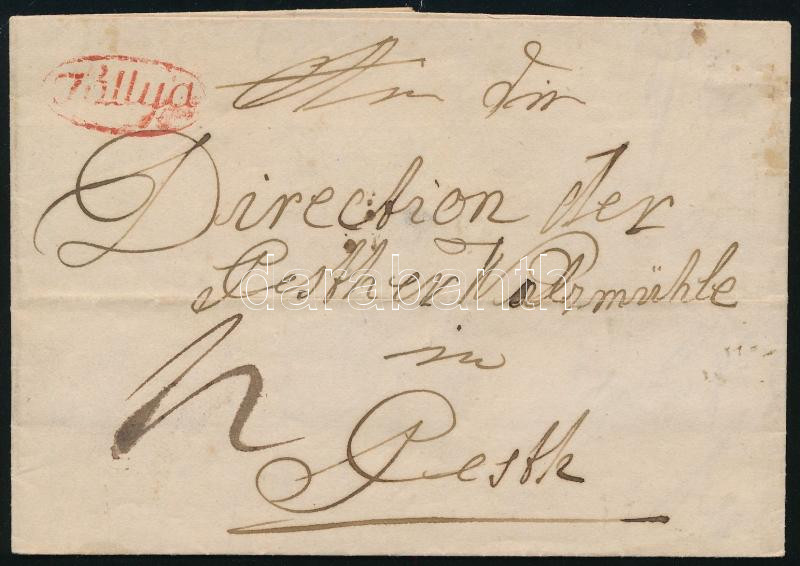 Tállya
An die
Direction der
Pesther Walzmühle
in
Pesth
darabanth